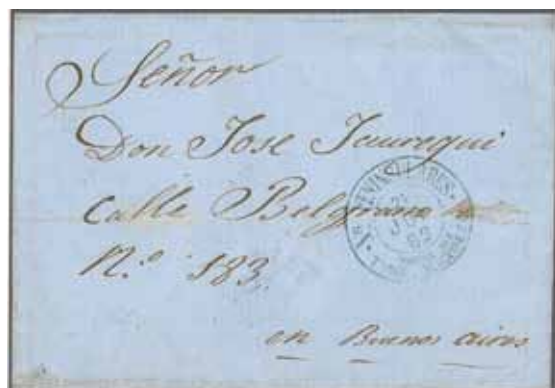 Señor
Don Jose Jauregui
calle Belgrano
N.º 183.
en Buenos aires